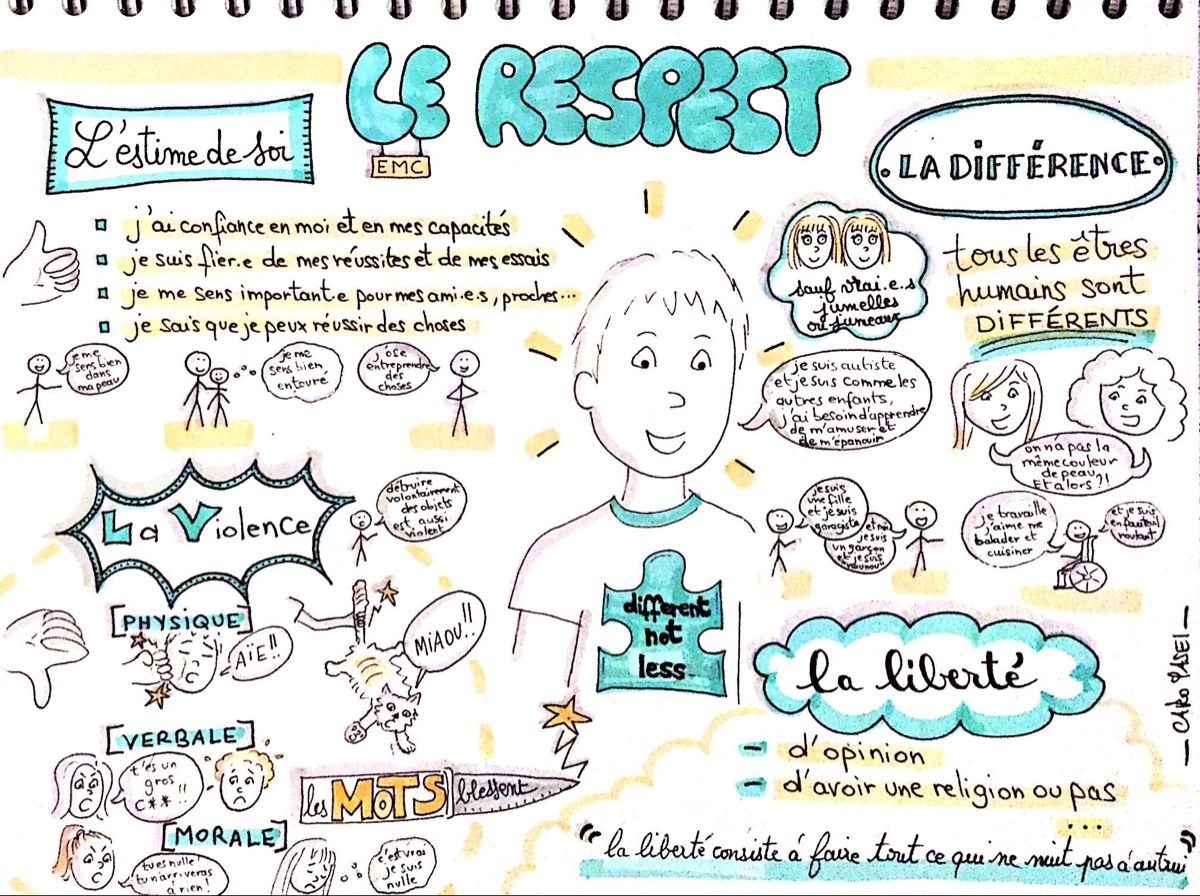 LE RESPECT
EMC
L'estime de soi
j'ai confiance en moi et en mes capacités
je suis fier.e de mes réussites et de mes essais
je me sens important.e pour mes ami.e.s, proches...
je sais que je peux réussir des choses
je me
sens bien
dans
ma peau
je me
sens bien
entouré
j'ose
entreprendre
des
choses
LA DIFFÉRENCE
tous les êtres
humains sont
DIFFÉRENTS
sauf vrai.e.s
jumelles
ou jumeaux
je suis autiste
et je suis comme les
autres enfants,
j'ai besoin d'apprendre
de m'amuser et
de m'épanouir
on n'a pas la
même couleur
de peau,
Et alors?!
je suis
une fille
et je suis
garagiste
et moi
je suis
un garçon
et je suis
je travaille
j'aime me
balader et
cuisiner
et je suis
en fauteuil
roulant
different
not
less
La Violence
détruire
volontairement
des objets
est aussi
violent
[PHYSIQUE]
AÏE!!
MiAOU!!
[VERBALE]
t'es un
gros
c**!!
les MOTS blessent
[MORALE]
tu es nulle!
tu n'arriveras
à rien!
c'est vrai
je suis
nulle
la liberté
- d'opinion
- d'avoir une religion ou pas
...
"la liberté consiste à faire tout ce qui ne nuit pas à autrui"